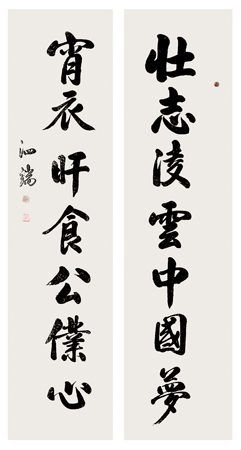 壯志淩雲中國夢
宵衣旰食公僕心